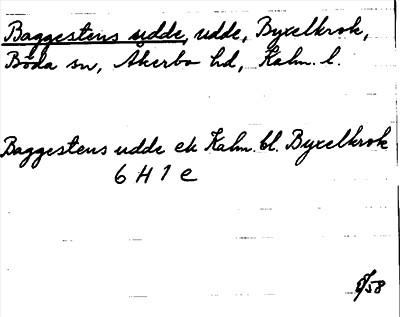 Baggestens udde, udde, Byxelkrok,
Böda sn, Åkerbo hd, Kalm. l.
Baggestens udde ek Kalm. bl. Byxelkrok
6 H 1 e
8/58